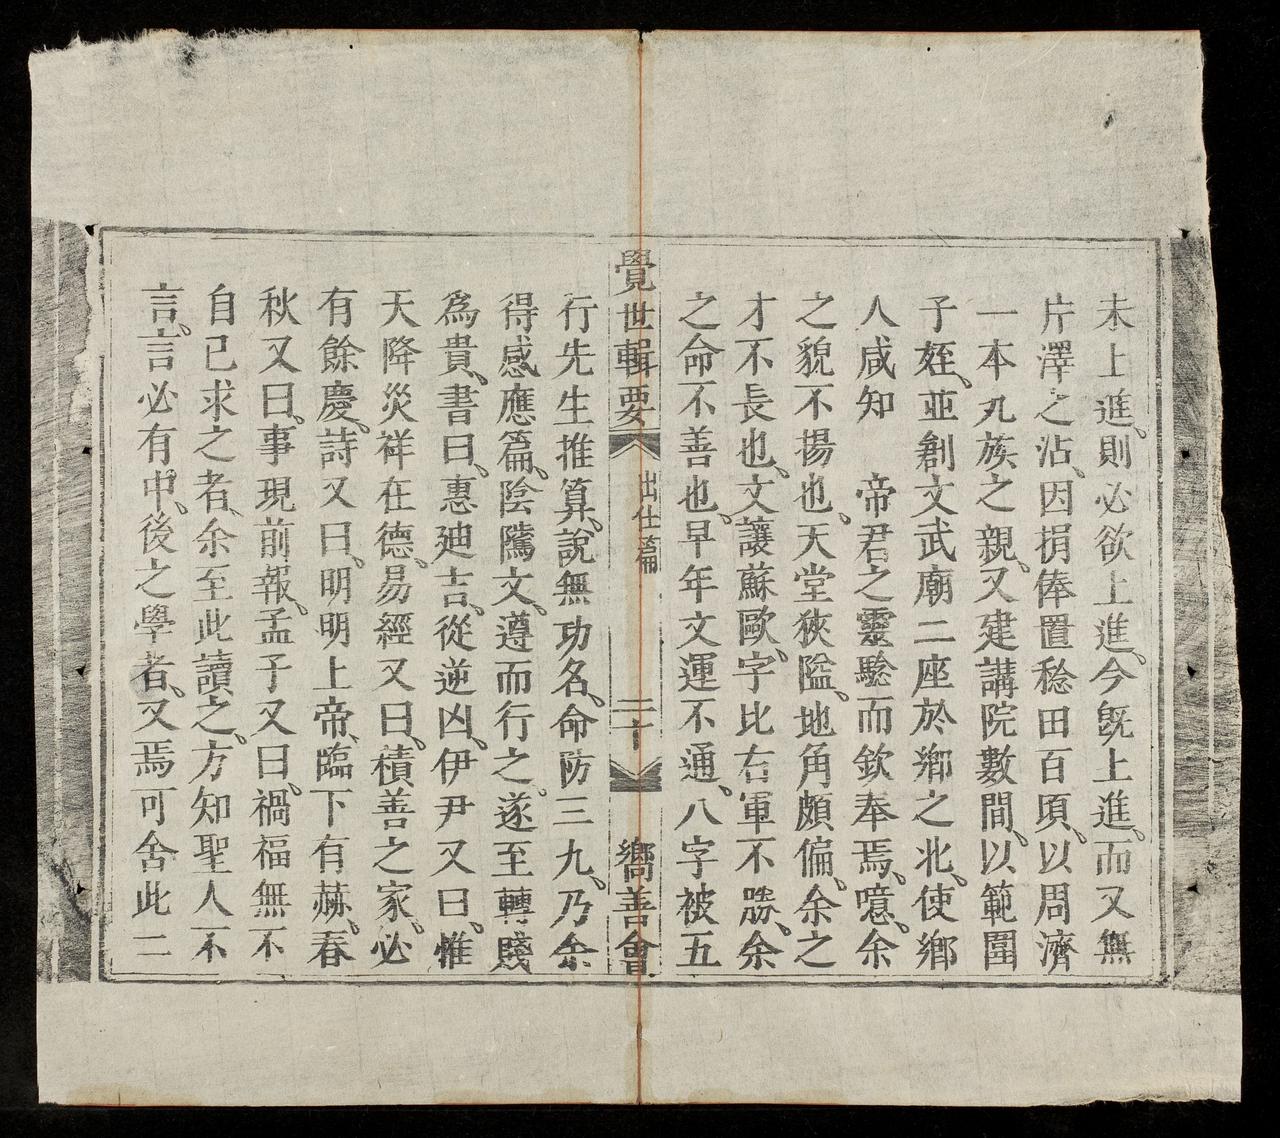 未上進、則必欲上進、今旣上進、而又無
片澤之沾、因捐俸置稔田百頃、以周濟
一本九族之親、又建講院數間、以範圍
子姪、並創文武廟二座於鄉之北、使鄉
人咸知　帝君之靈驗而欽奉焉、噫、余
之貌不揚也、天堂狹隘、地角頗偏、余之
才不長也、文讓蘇歐、字比右軍不勝、余
之命不善也、早年文運不通、八字被五
覺世輯要　出仕篇　二十　嚮善會
行先生推算、說無功名、命防三九、乃余
得感應篇、陰隲文、遵而行之、遂至轉賤
爲貴、書曰、惠廸吉、從逆凶、伊尹又曰、惟
天降災祥在德、易經又曰、積善之家、必
有餘慶、詩又曰、明明上帝、臨下有赫、春
秋又曰、事現前報、孟子又曰、禍福無不
自已求之者、余至此讀之、方知聖人不
言、言必有中、後之學者、又焉可舍此二